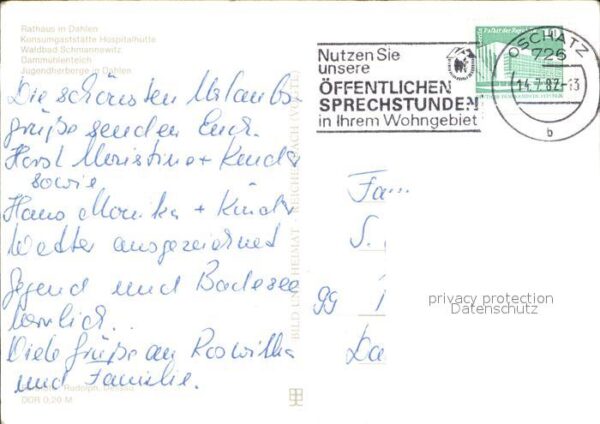 Rathaus in Dahlen
Konsumgaststätte Hospitalhütte
Waldbad Schmannewitz
Dammühlenteich
Jugendherberge in Dahlen
Die schönsten Urlaubs-
grüße senden Euch.
Horst Christine + Kinder
sowie
Hans Monika + Kinder
Wetter ausgezeichnet
Gegend und Badesee
herrlich.
Viele Grüße an Roswitha
und Familie.
Rudolph, Dessau
DDR 0,20 M
BILD UND HEIMAT REICHENBACH (VOGTL)
Nutzen Sie
unsere
ÖFFENTLICHEN
SPRECHSTUNDEN
in Ihrem Wohngebiet
OSCHATZ
726
14.7.87-13
b
Fam
S.
99
Da
privacy protection
Datenschutz